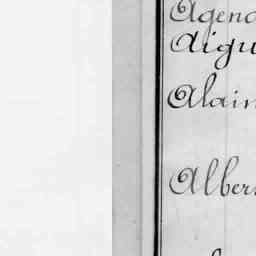 Agend
Aigu
Alain
Albers